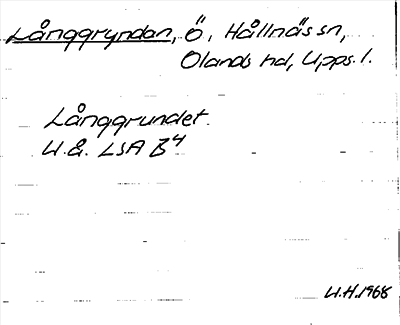 Långgryndan, Ö, Hållnäs sn,
Olands hd, Upps. l.
Långgrundet.
U.å. LSA B4
U.H. 1968